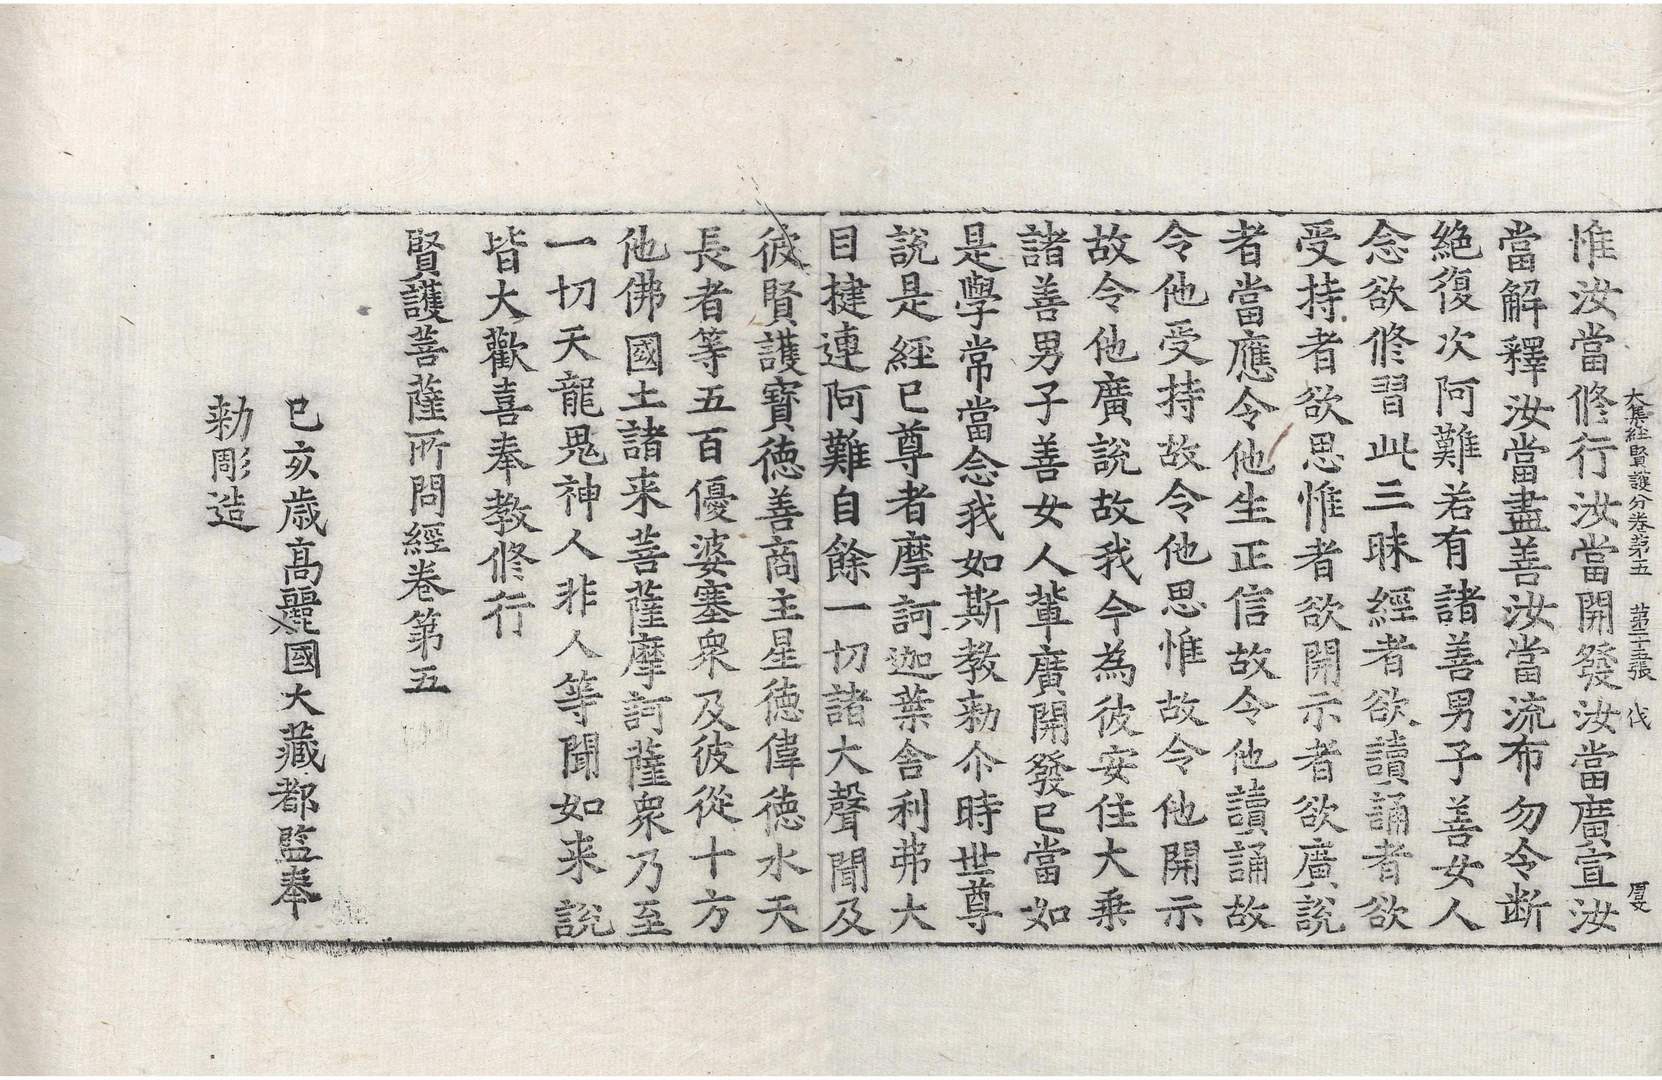 大集經賢護分卷第五　第二十五張　伐
惟汝當修行汝當開發汝當廣宣汝
當解釋汝當盡善汝當流布勿令断
絶復次阿難若有諸善男子善女人
念欲修習此三昧經者欲讀誦者欲
受持者欲思惟者欲開示者欲廣說
者當應令他生正信故令他讀誦故
令他受持故令他思惟故令他開示
故令他廣說故我今為彼安住大乗
諸善男子善女人軰廣開發已當如
是學常當念我如斯教勑尒時世尊
說是經已尊者摩訶迦葉舍利弗大
目揵連阿難自餘一切諸大聲聞及
彼賢護寶德善商主星德偉德水天
長者等五百優婆塞衆及彼從十方
他佛國土諸来菩薩摩訶薩衆乃至
一切天龍鬼神人非人等聞如来說
皆大歡喜奉教修行
賢護菩薩所問經卷第五
己亥歳高麗國大藏都監奉
勑彫造